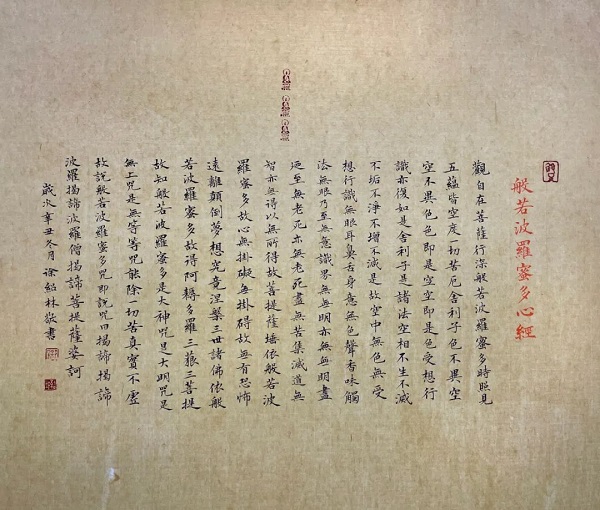 般若波羅蜜多心經
觀自在菩薩行深般若波羅蜜多時照見
五蘊皆空度一切苦厄舍利子色不異空
空不異色色即是空空即是色受想行
識亦復如是舍利子是諸法空相不生不滅
不垢不淨不增不減是故空中無色無受
想行識無眼耳鼻舌身意無色聲香味觸
法無眼界乃至無意識界無無明亦無無明盡
乃至無老死亦無老死盡無苦集滅道無
智亦無得以無所得故菩提薩埵依般若波
羅蜜多故心無掛礙無掛碍故無有恐怖
遠離顛倒夢想究竟涅槃三世諸佛依般
若波羅蜜多故得阿耨多羅三藐三菩提
故知般若波羅蜜多是大神咒是大明咒是
無上咒是無等等咒能除一切苦真實不虛
故說般若波羅蜜多咒即說咒曰揭諦揭諦
波羅揭諦波羅僧揭諦菩提薩婆訶
歲次辛丑冬月徐紹林敬書